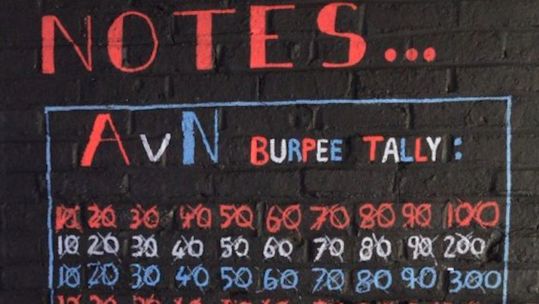 NOTES...
AvN BURPEE TALLY:
10 20 30 40 50 60 70 80 90 100
10 20 30 40 50 60 70 80 90 200
10 20 30 40 50 60 70 80 90 300